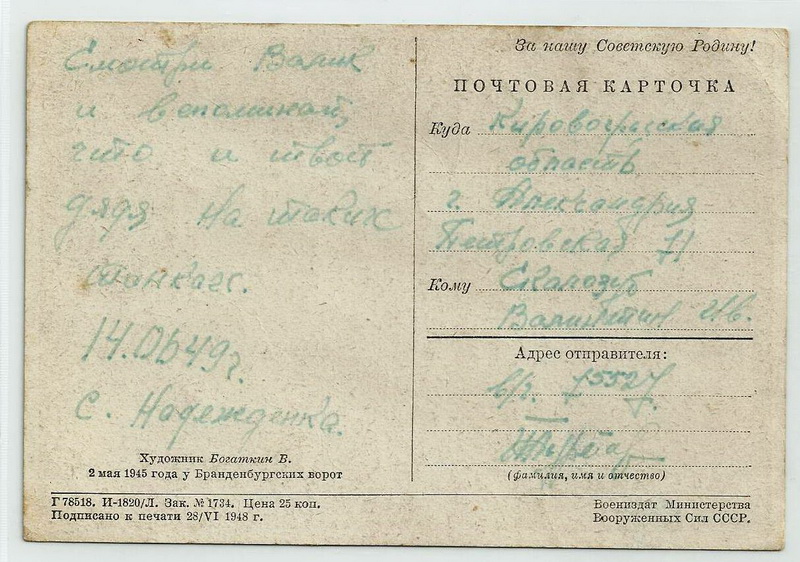 Смотри Валик
и вспоминай,
что и твой
дядя на таких
танках.
14.06 49 г.
с. Надежденка.
Художник Богаткин В.
2 мая 1945 года у Бранденбургских ворот
За нашу Советскую Родину!
ПОЧТОВАЯ КАРТОЧКА
Куда Кировоградская
область
г. Александрия
Петровская 71
Кому Скалозуб
Валентин Ив.
Адрес отправителя:
в/ч. 75527.
(фамилия, имя и отчество)
Г 78518. И-1820/Л. Зак. № 1734. Цена 25 коп.
Подписано к печати 28/VI 1948 г.
Воениздат Министерства
Вооруженных Сил СССР.